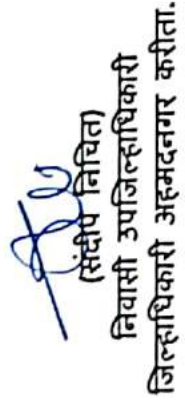 (संदीप निचित)
निवासी उपजिल्हाधिकारी
जिल्हाधिकारी अहमदनगर करीता.